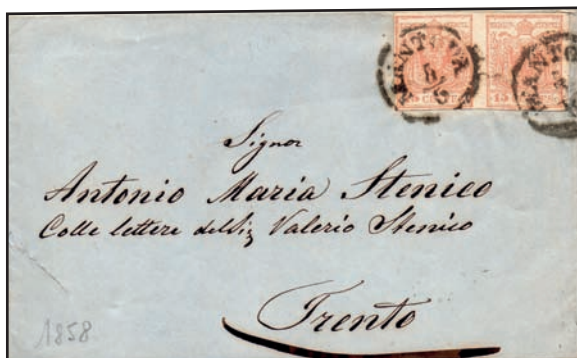 MANTOVA MANTO
15 CENTES 15
Signor
Antonio Maria Stenico
Colle lettere del Sig Valerio Stenico
Trento
1858